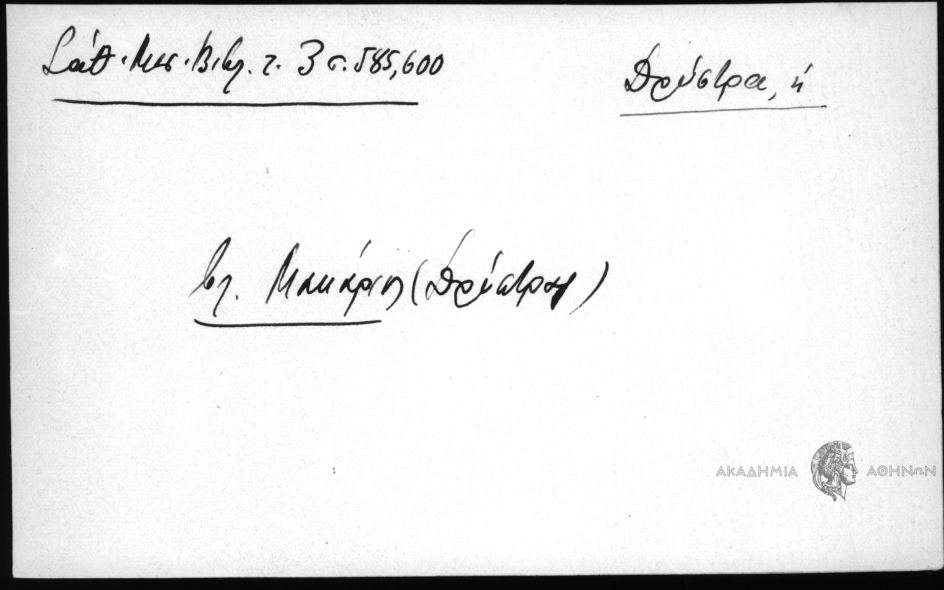 Σάθ. Μεσ. Βιβλ. τ. 3 σ. 585,600
Δρύστρα, ἡ
βλ. Μακάριος (Δρύστρας)
ΑΚΑΔΗΜΙΑ ΑΘΗΝΩΝ